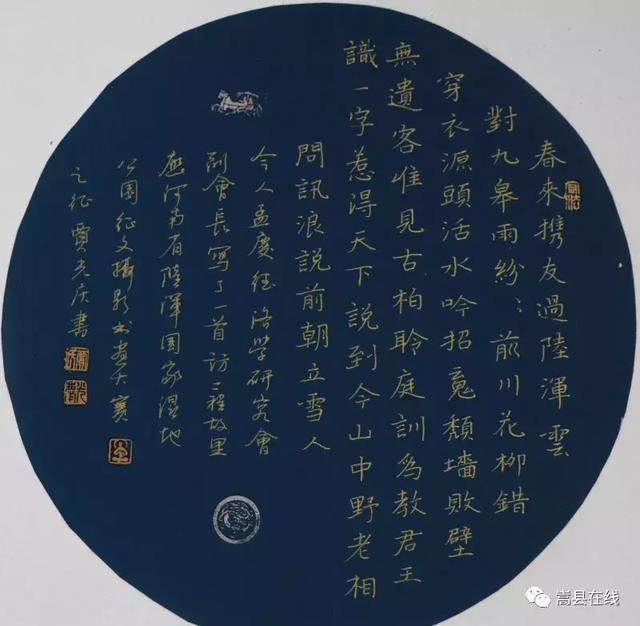 春来携友過陸渾雲
對九皋雨紛〻前川花柳錯
穿衣源頭活水吟招䰟頹墻敗壁
無遺客惟見古柏聆庭訓為教君王
識一字惹得天下説到今山中野老相
問訊浪説前朝立雪人
今人孟慶征洛學研究會
副會長寫了一首訪二程故里
應河南省陸渾国家濕地
公園征文攝影书画大赛
之征賈老庆書
嵩县在线